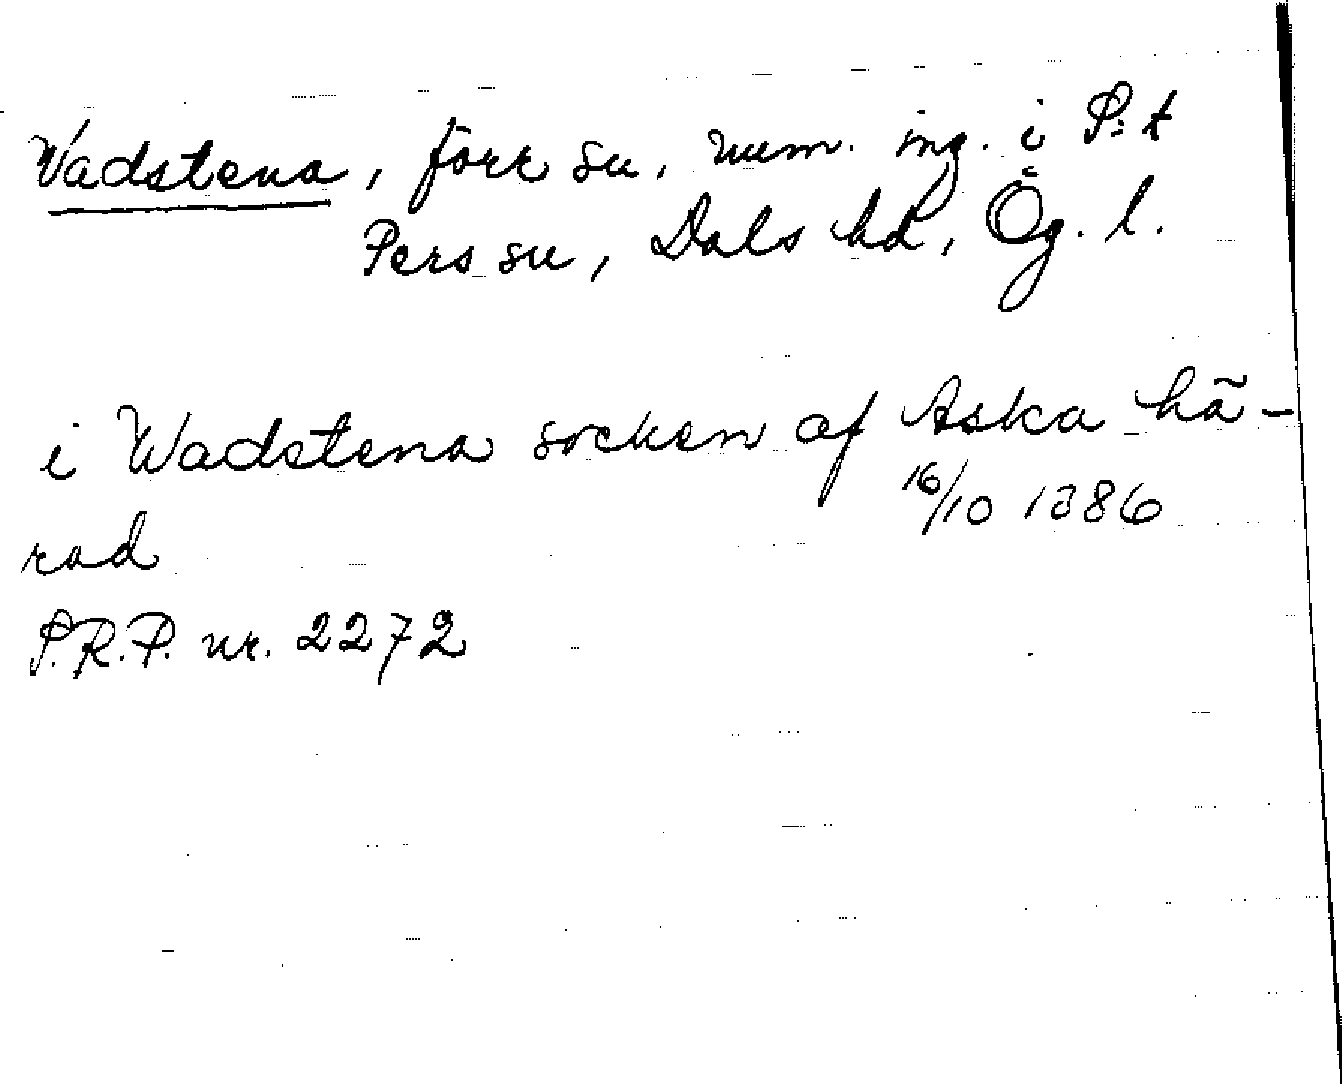 Vadstena, förr sn, num. ing. i S:t
Pers sn, Dals hd, Ög. l.
i Wadstena socken af Aska hä-
rad
16/10 1386
S.R.P. nr. 2272